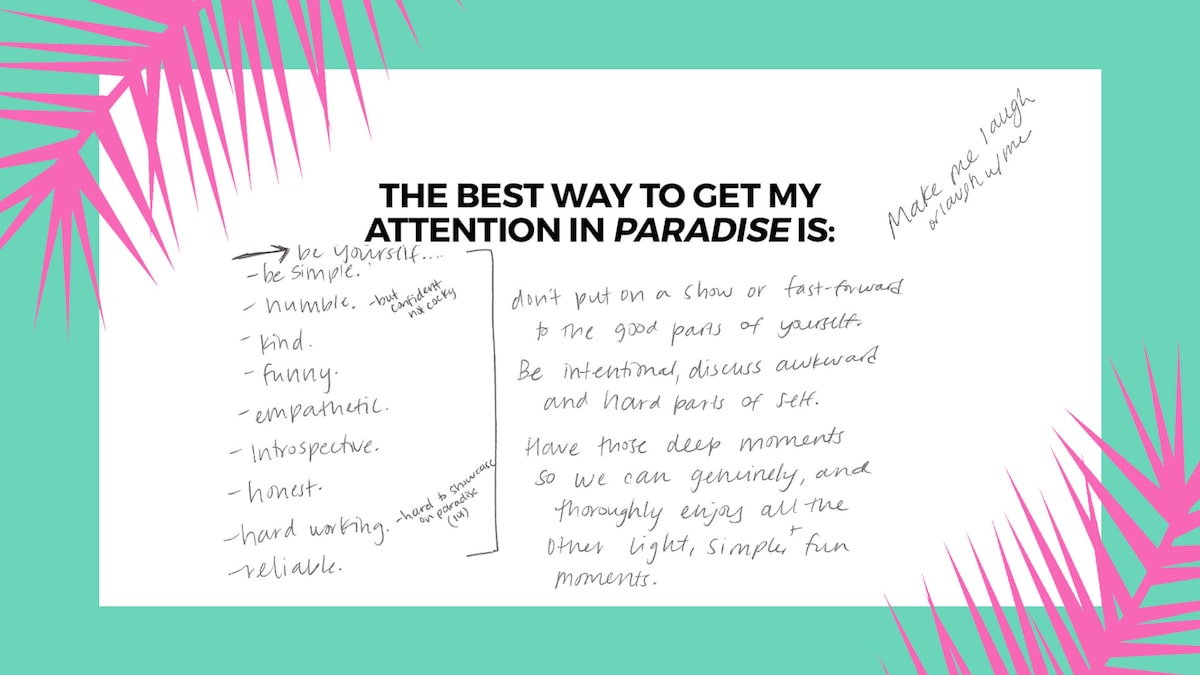 THE BEST WAY TO GET MY
ATTENTION IN PARADISE IS:
Make me laugh
or laugh w/ me
be yourself....
- be simple.
- humble. - but
confident
not cocky
- kind.
- funny.
- empathetic.
- Introspective.
- honest.
- hard working. - hard to showcase
on paradise
- reliable.
don't put on a show or fast-forward
to the good parts of yourself.
Be intentional, discuss awkward
and hard parts of self.
Have those deep moments
so we can genuinely, and
thoroughly enjoy all the
other light, simple + fun
moments.